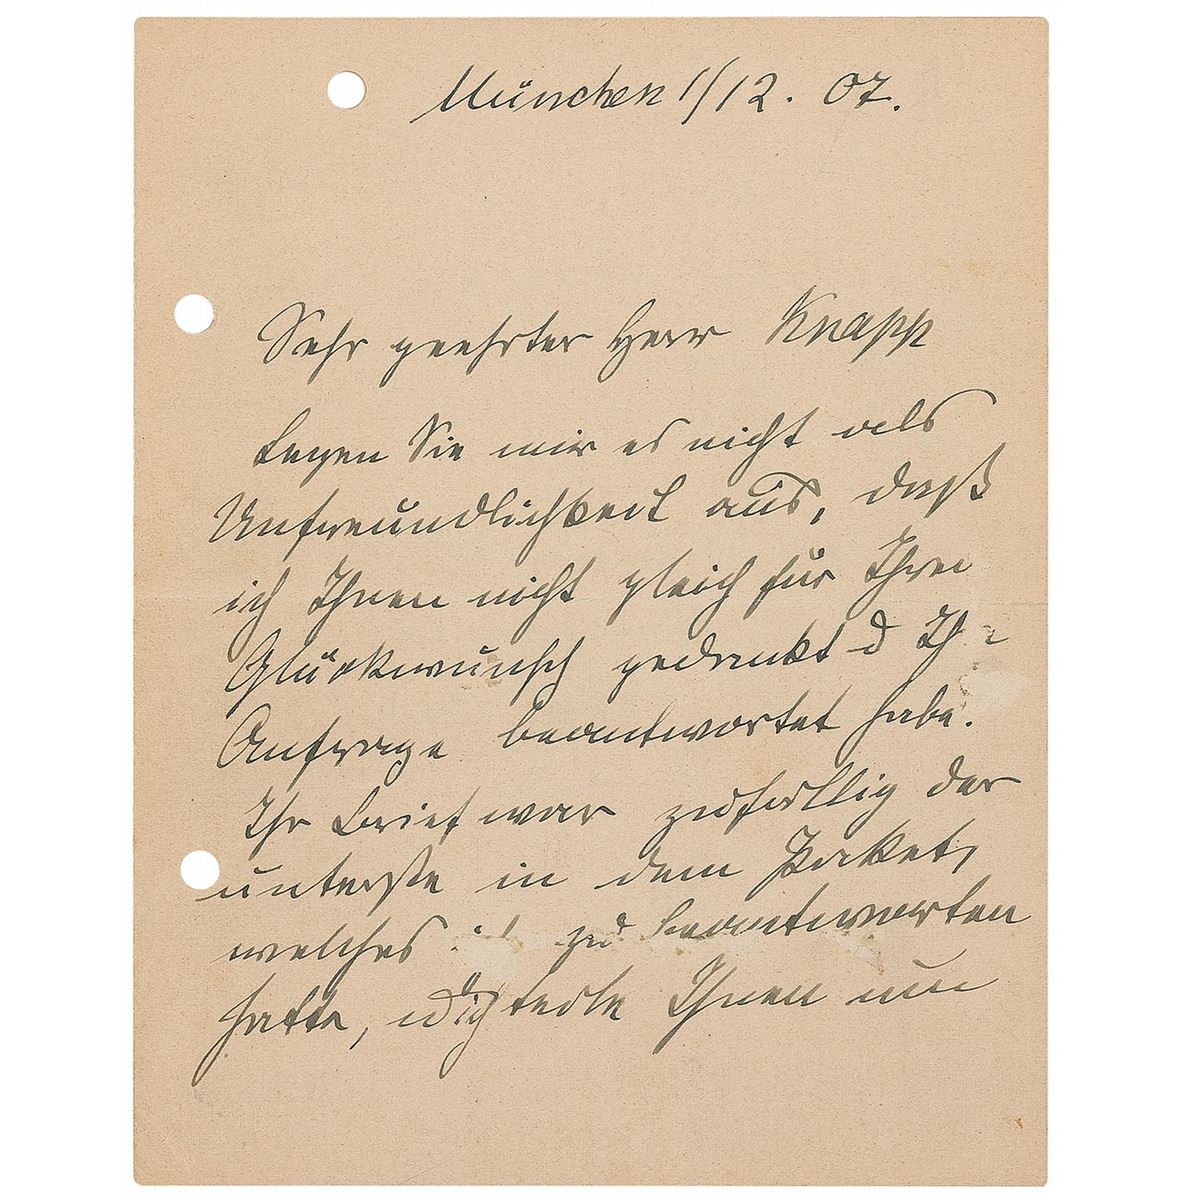 München 1/12. 07.
Sehr geehrter Herr Knapp
Legen Sie mir es nicht als
Unfreundlichkeit aus, daß
ich Ihnen nicht gleich für Ihren
Glückwunsch gedankt
Anfrage beantwortet habe.
Ihr Brief war zufällig der
unterste in dem Paket,
welches ich zu beantworten
hatte, ich teile Ihnen nun